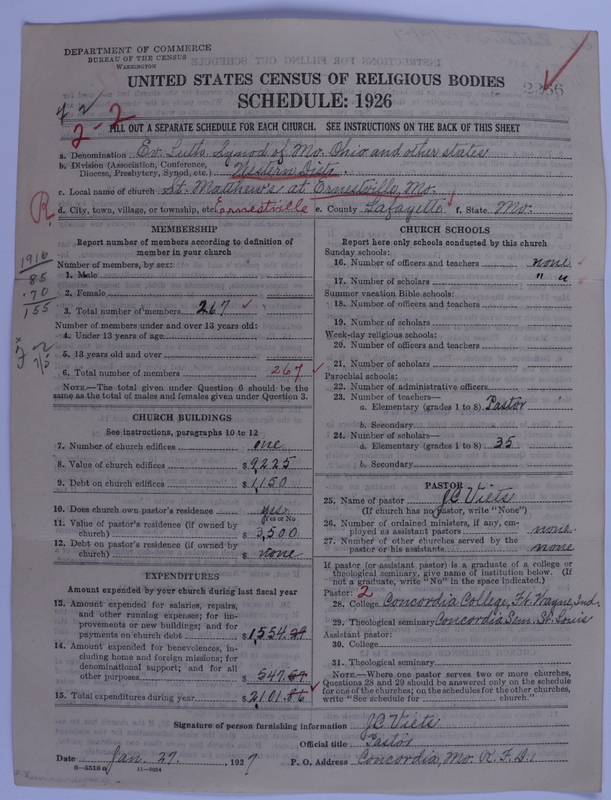 DEPARTMENT OF COMMERCE
BUREAU OF THE CENSUS
WASHINGTON
UNITED STATES CENSUS OF RELIGIOUS BODIES
SCHEDULE: 1926
2-2
FILL OUT A SEPARATE SCHEDULE FOR EACH CHURCH. SEE INSTRUCTIONS ON THE BACK OF THIS SHEET
a. Denomination Ev. Luth. Synod of Mo. Ohio and other states
b. Division (Association, Conference, Diocese, Presbytery, Synod, etc.) Western Distr.
c. Local name of church St. Matthew's at Ernestville, Mo.
R. d. City, town, village, or township, etc. Earnestville e. County Lafayette f. State Mo.
MEMBERSHIP
Report number of members according to definition of
member in your church
Number of members, by sex:
1. Male
2. Female
3. Total number of members 267
Number of members under and over 13 years old:
4. Under 13 years of age
5. 13 years old and over
6. Total number of members 267
NOTE.—The total given under Question 6 should be
same as the total of males and females given under Question 3.
1916
85
.70
155
CHURCH BUILDINGS
See instructions, paragraphs 10 to 12
7. Number of church edifices one
8. Value of church edifices $ 9225
9. Debt on church edifices $ 1,150
10. Does church own pastor's residence yes
Yes or No
11. Value of pastor's residence (if owned by
church) $ 3,500
12. Debt on pastor's residence (if owned by
church) $ none
EXPENDITURES
Amount expended by your church during last fiscal year
13. Amount expended for salaries, repairs,
and other running expenses; for im-
provements or new buildings; and for
payments on church debt $ 1,554.29
14. Amount expended for benevolences, in-
cluding home and foreign missions; for
denominational support; and for all
other purposes $ 547.57
15. Total expenditures during year $ 2101.86
CHURCH SCHOOLS
Report here only schools conducted by this church
Sunday schools:
16. Number of officers and teachers none
17. Number of scholars " "
Summer vacation Bible schools:
18. Number of officers and teachers
19. Number of scholars
Week-day religious schools:
20. Number of officers and teachers
21. Number of scholars
Parochial schools:
22. Number of administrative officers
23. Number of teachers—
a. Elementary (grades 1 to 8) Pastor
b. Secondary
24. Number of scholars—
a. Elementary (grades 1 to 8) 35
b. Secondary
PASTOR
25. Name of pastor J C Viets
(If church has no pastor, write "None")
26. Number of ordained ministers, if any, em-
ployed as assistant pastors none
27. Number of other churches served by the
pastor or his assistants none
If pastor (or assistant pastor) is a graduate of a college or
theological seminary, give name of institution below. (If
not a graduate, write "No" in the space indicated.)
Pastor: 2
28. College Concordia College, Ft. Wayne, Ind.
29. Theological seminary Concordia Sem. St. Louis
Assistant pastor:
30. College
31. Theological seminary
NOTE.—Where one pastor serves two or more churches,
Questions 28 and 29 should be answered only on the schedule
for one of the churches; on the schedules for the other churches,
write "See schedule for church."
Signature of person furnishing information J C Viets
Official title Pastor
Date Jan. 27, 1927 P. O. Address Concordia, Mo. R.F.D. 1
8—5518 a 11—9034